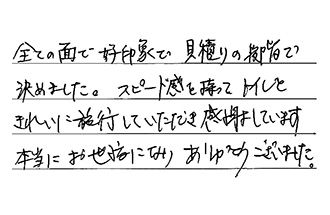 全ての面で好印象で 見積りの御旨で
決めました。スピード感を持って トイレを
きれいに施行していただき感謝しています
本当にお世話になり ありがとうございました。